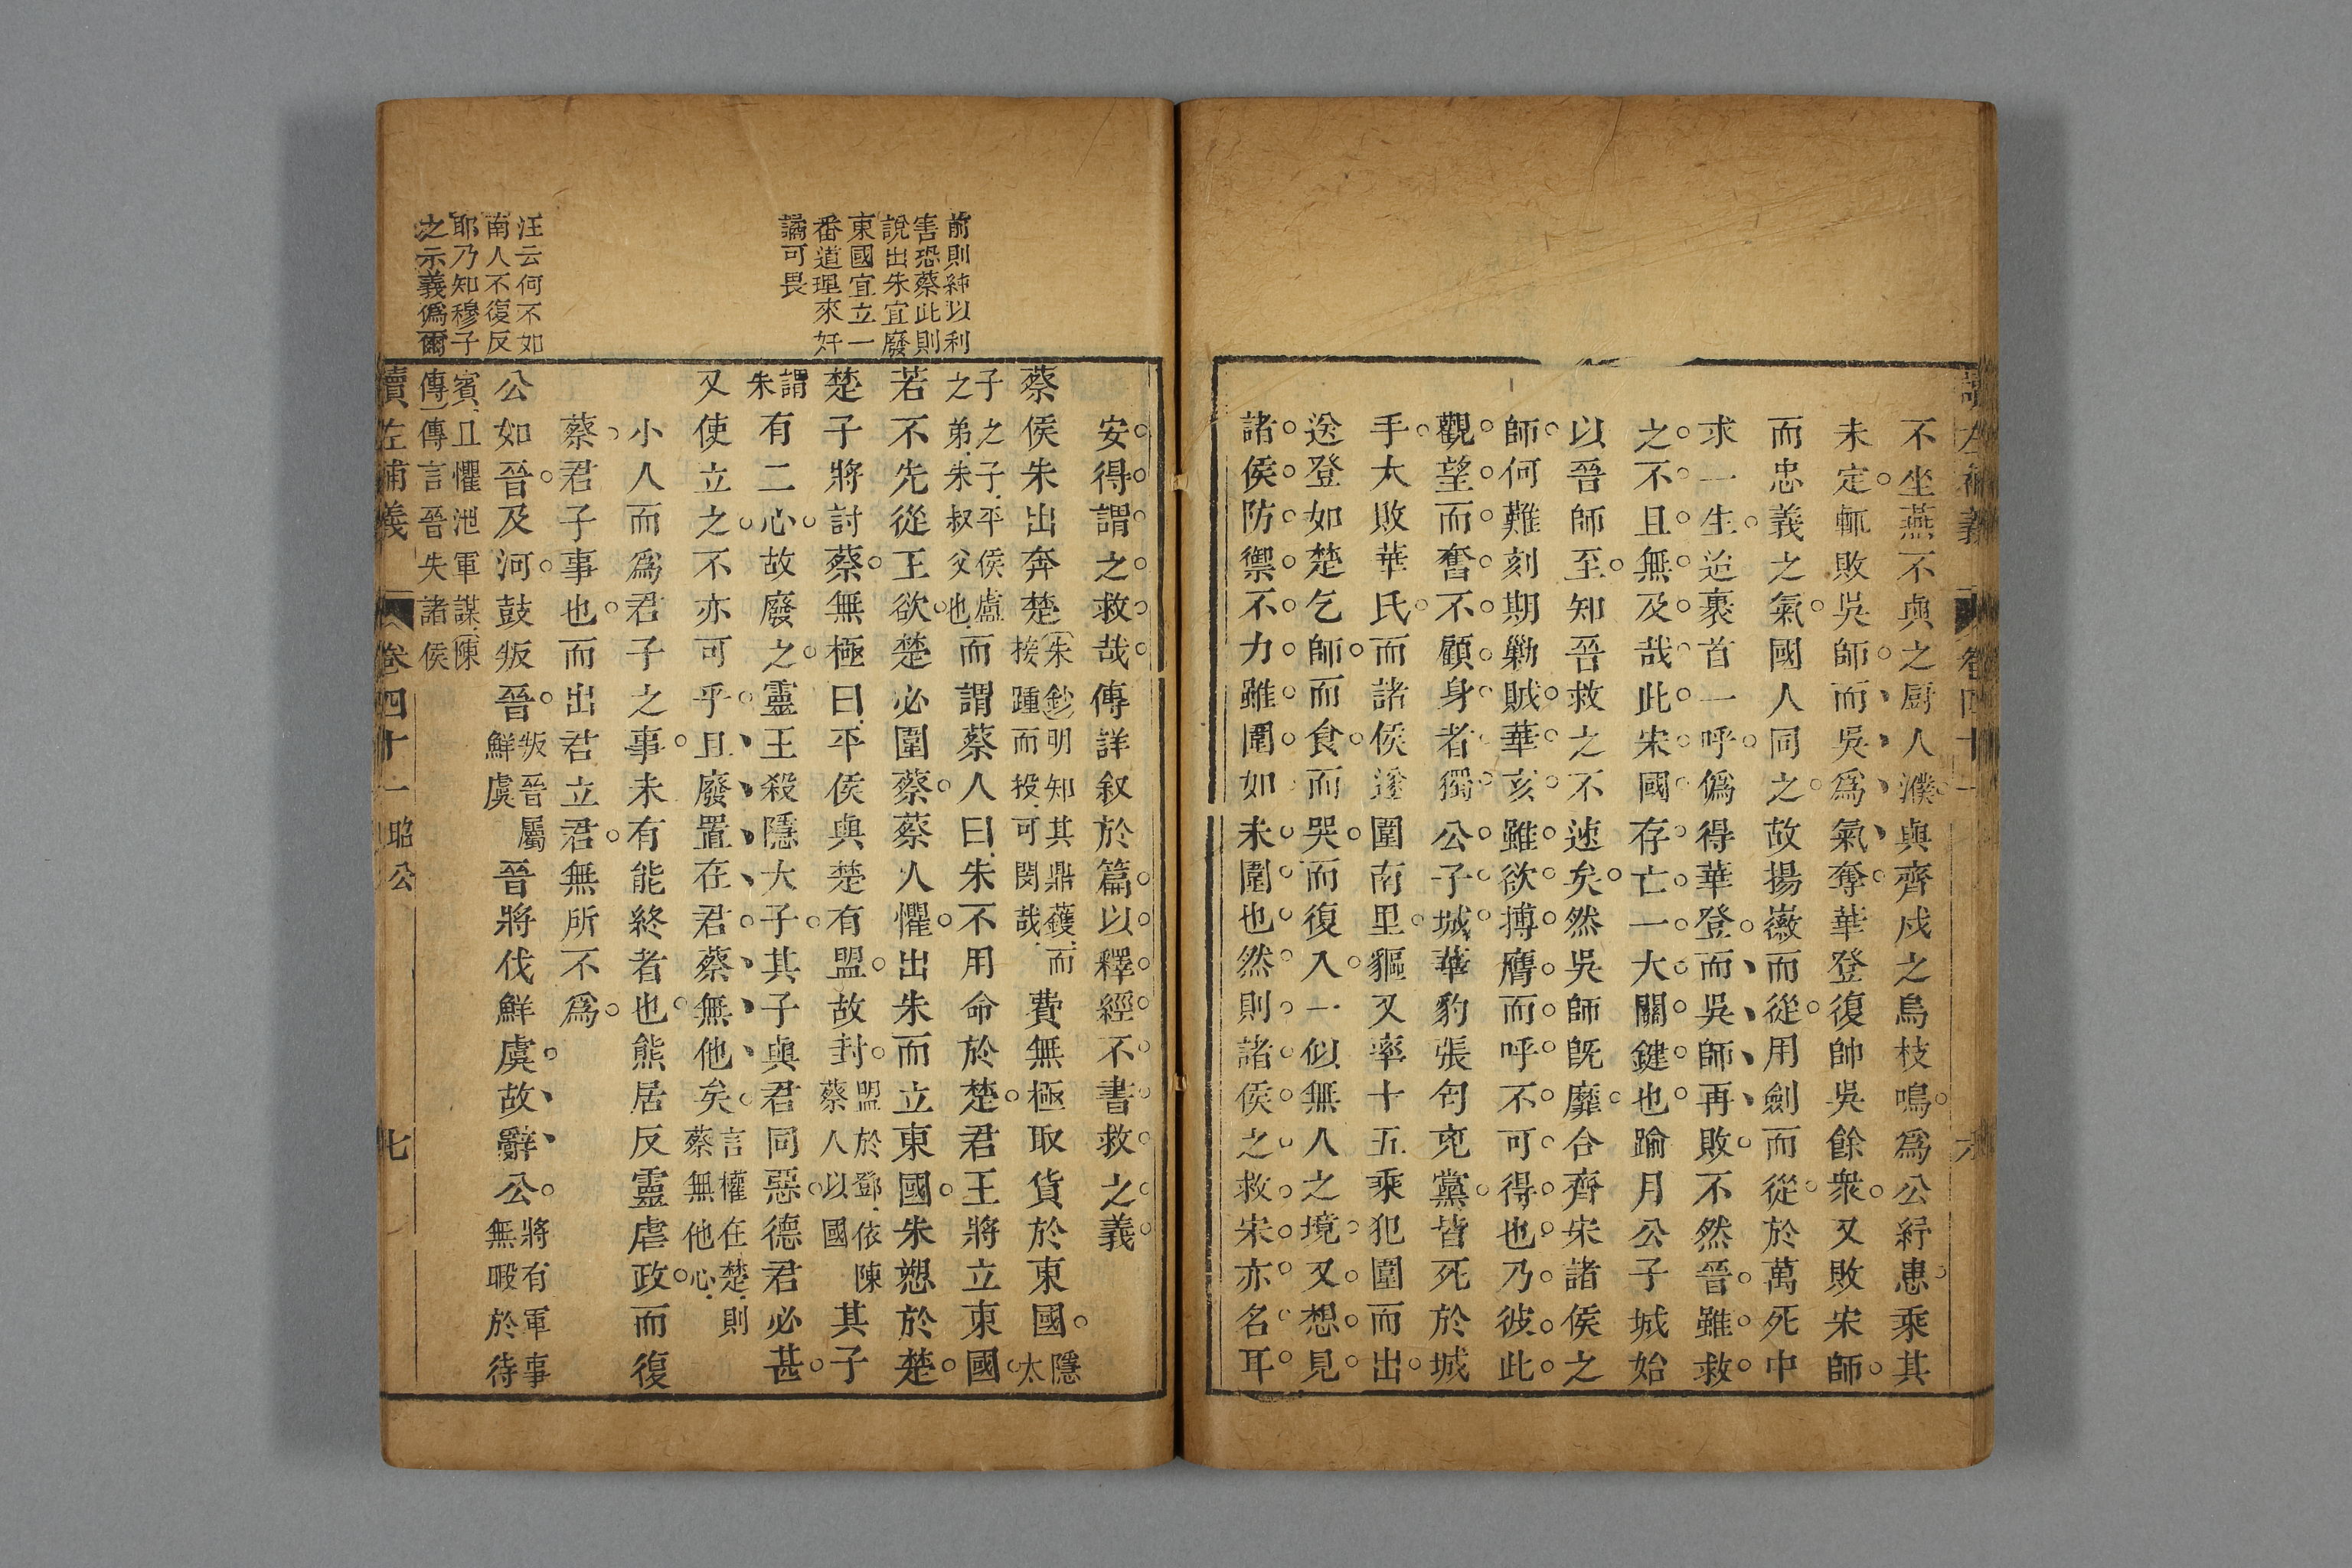 不坐燕不與之厨人濮與齊戍之烏枝鳴爲公紓患乘其
未定輒敗吳師而吳爲氣奪華登復帥吳餘衆又敗宋師
而忠義之氣國人同之故揚徽而從用劍而從於萬死中
求一生迨裹首一呼僞得華登而吳師再敗不然晉雖救
之不且無及哉此宋國存亡一大關鍵也踰月公子城始
以晉師至知晉救之不速矣然吳師旣靡合齊宋諸侯之
師何難刻期勦賊華亥雖欲搏膺而呼不可得也乃彼此
觀望而奮不顧身者獨公子城華豹張匄兖黨皆死於城
手大敗華氏而諸侯遂圍南里軀又率十五乘犯圍而出
送登如楚乞師而食而哭而復入一似無人之境又想見
諸侯防禦不力雖圍如未圍也然則諸侯之救宋亦名耳
安得謂之救哉傳詳叙於篇以釋經不書救之義
蔡侯朱出奔楚
朱鈔明知其鼎鑊而
接踵而投可閔哉
費無極取貨於東國
隱太
子之子平侯盧
之弟朱叔父也
而謂蔡人曰朱不用命於楚君王將立東國
若不先從王欲楚必圍蔡蔡人懼出朱而立東國朱愬於楚
楚子將討蔡無極曰平侯與楚有盟故封
盟於鄧依陳
蔡人以國
其子
謂朱
有二心故廢之靈王殺隱大子其子與君同惡德君必甚
又使立之不亦可乎且廢置在君蔡無他矣
言權在楚則
蔡無他心
小人而爲君子之事未有能終者也熊居反靈虐政而復
蔡君子事也而出君立君無所不爲
公如晉及河鼓叛晉
叛晉屬
鮮虞
晉將伐鮮虞故辭公
將有軍事
無暇於待
賓且懼泄軍謀陳
傳傳言晉失諸侯
讀左補義
卷四十一
昭公
七
前則純以利
害恐蔡此則
說出朱宜廢
東國宜立一
番道理來奸
譎可畏
汪云何不如
南人不復反
耶乃知穆子
之示義僞爾